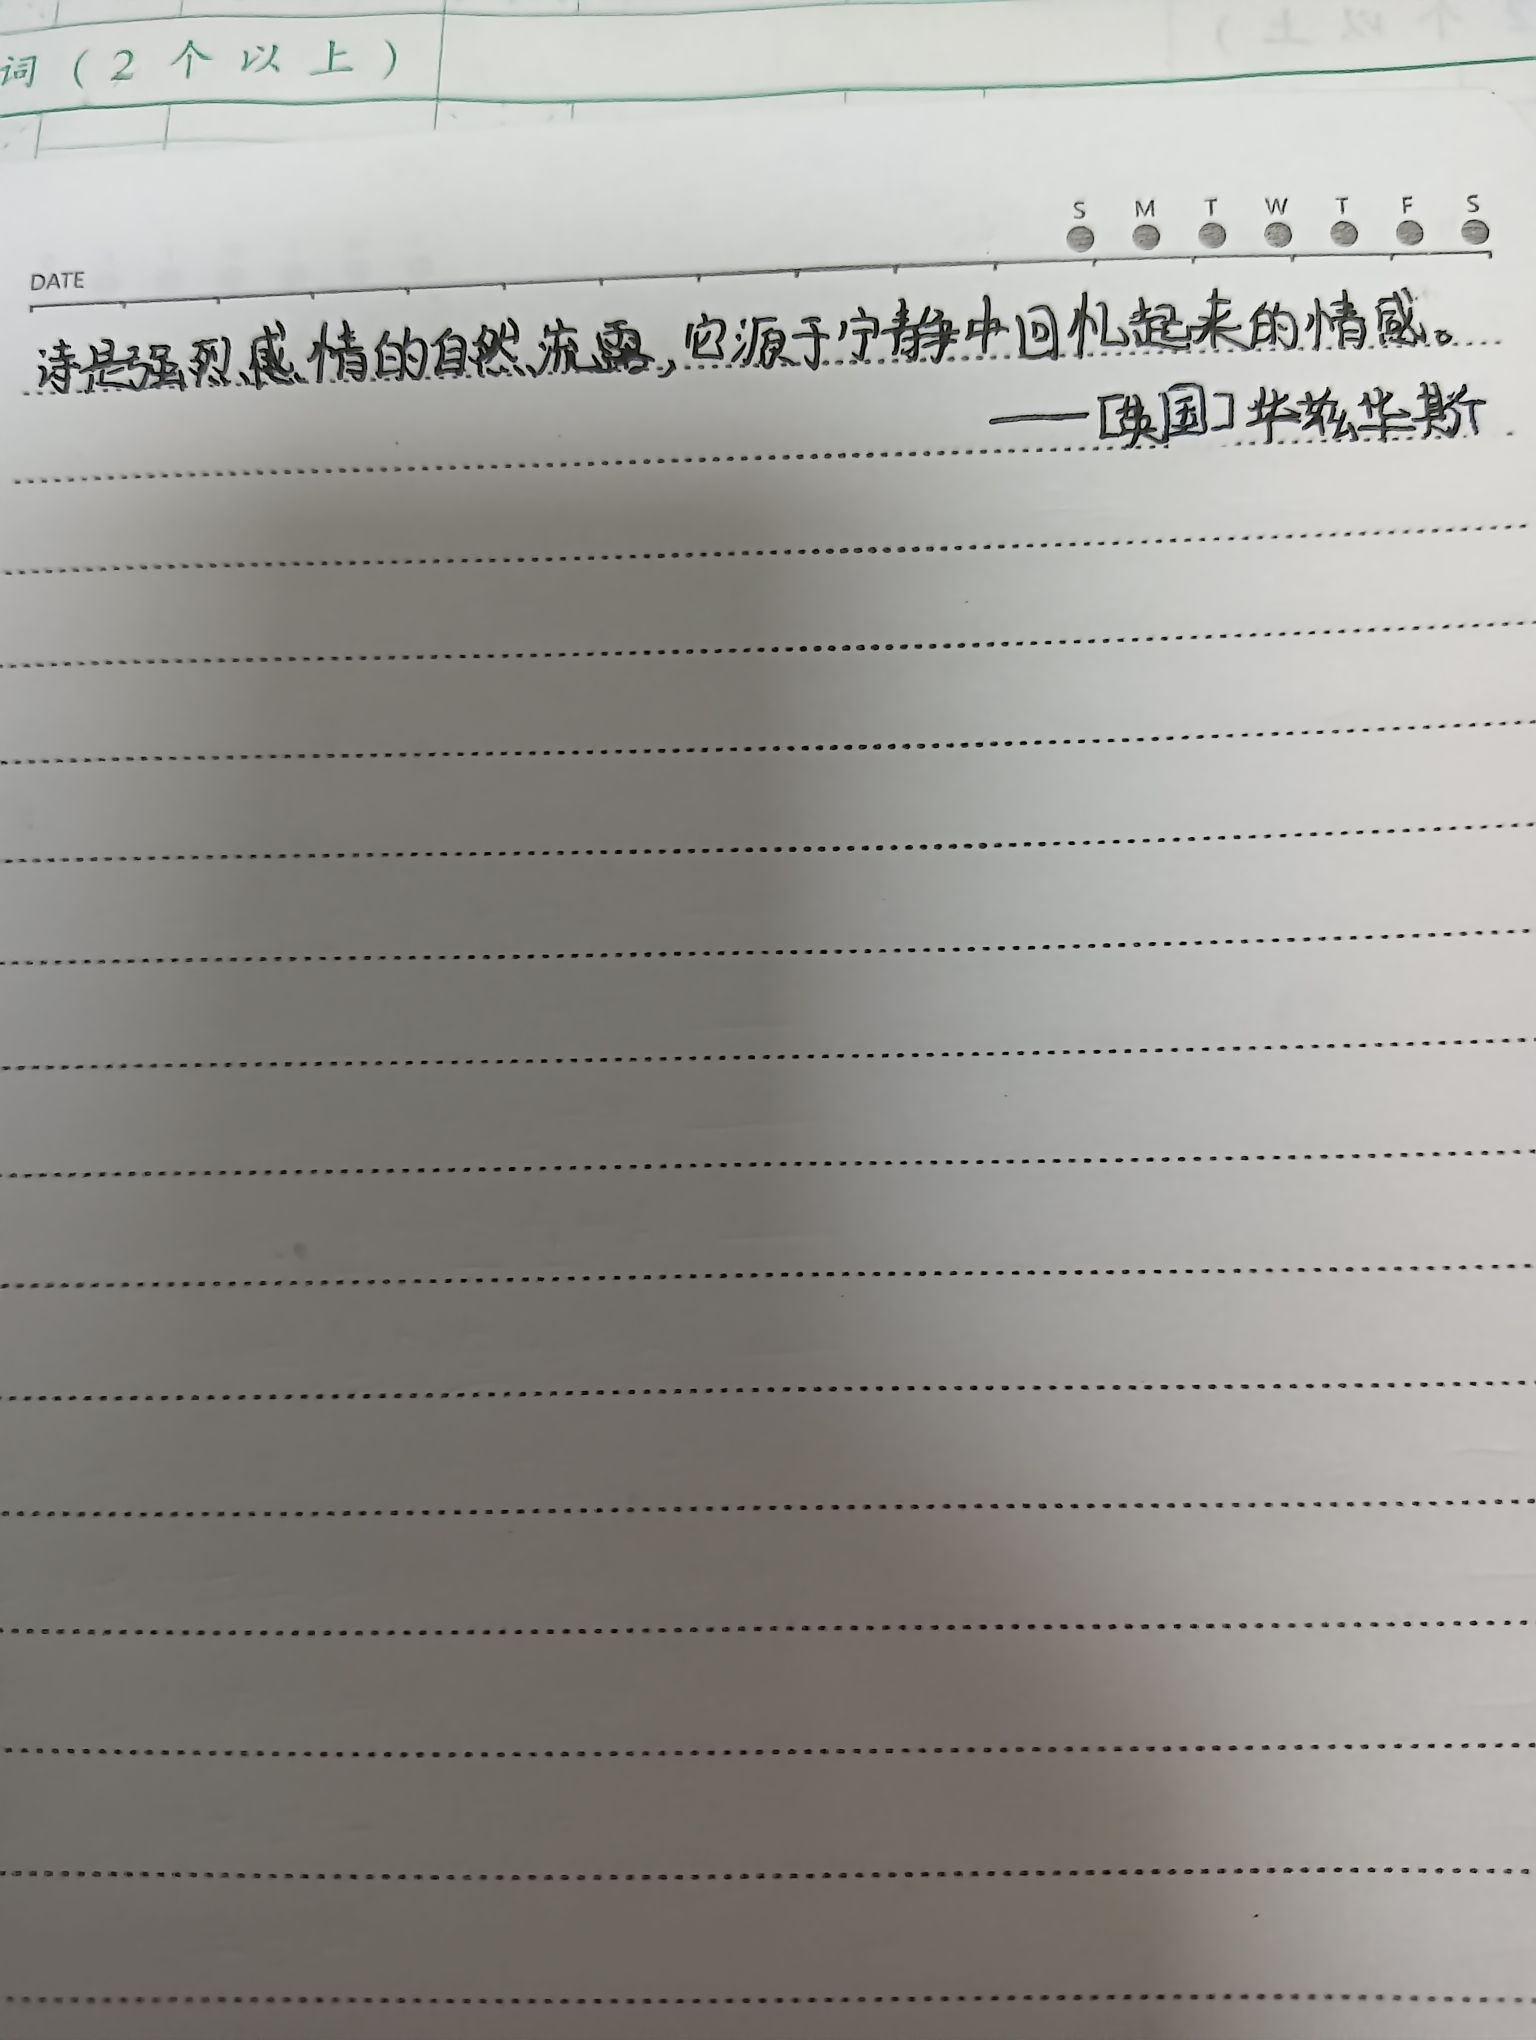 词（2个以上）
S M T W T F S
DATE
诗是强烈感情的自然流露，它源于宁静中回忆起来的情感。
——[英国]华兹华斯